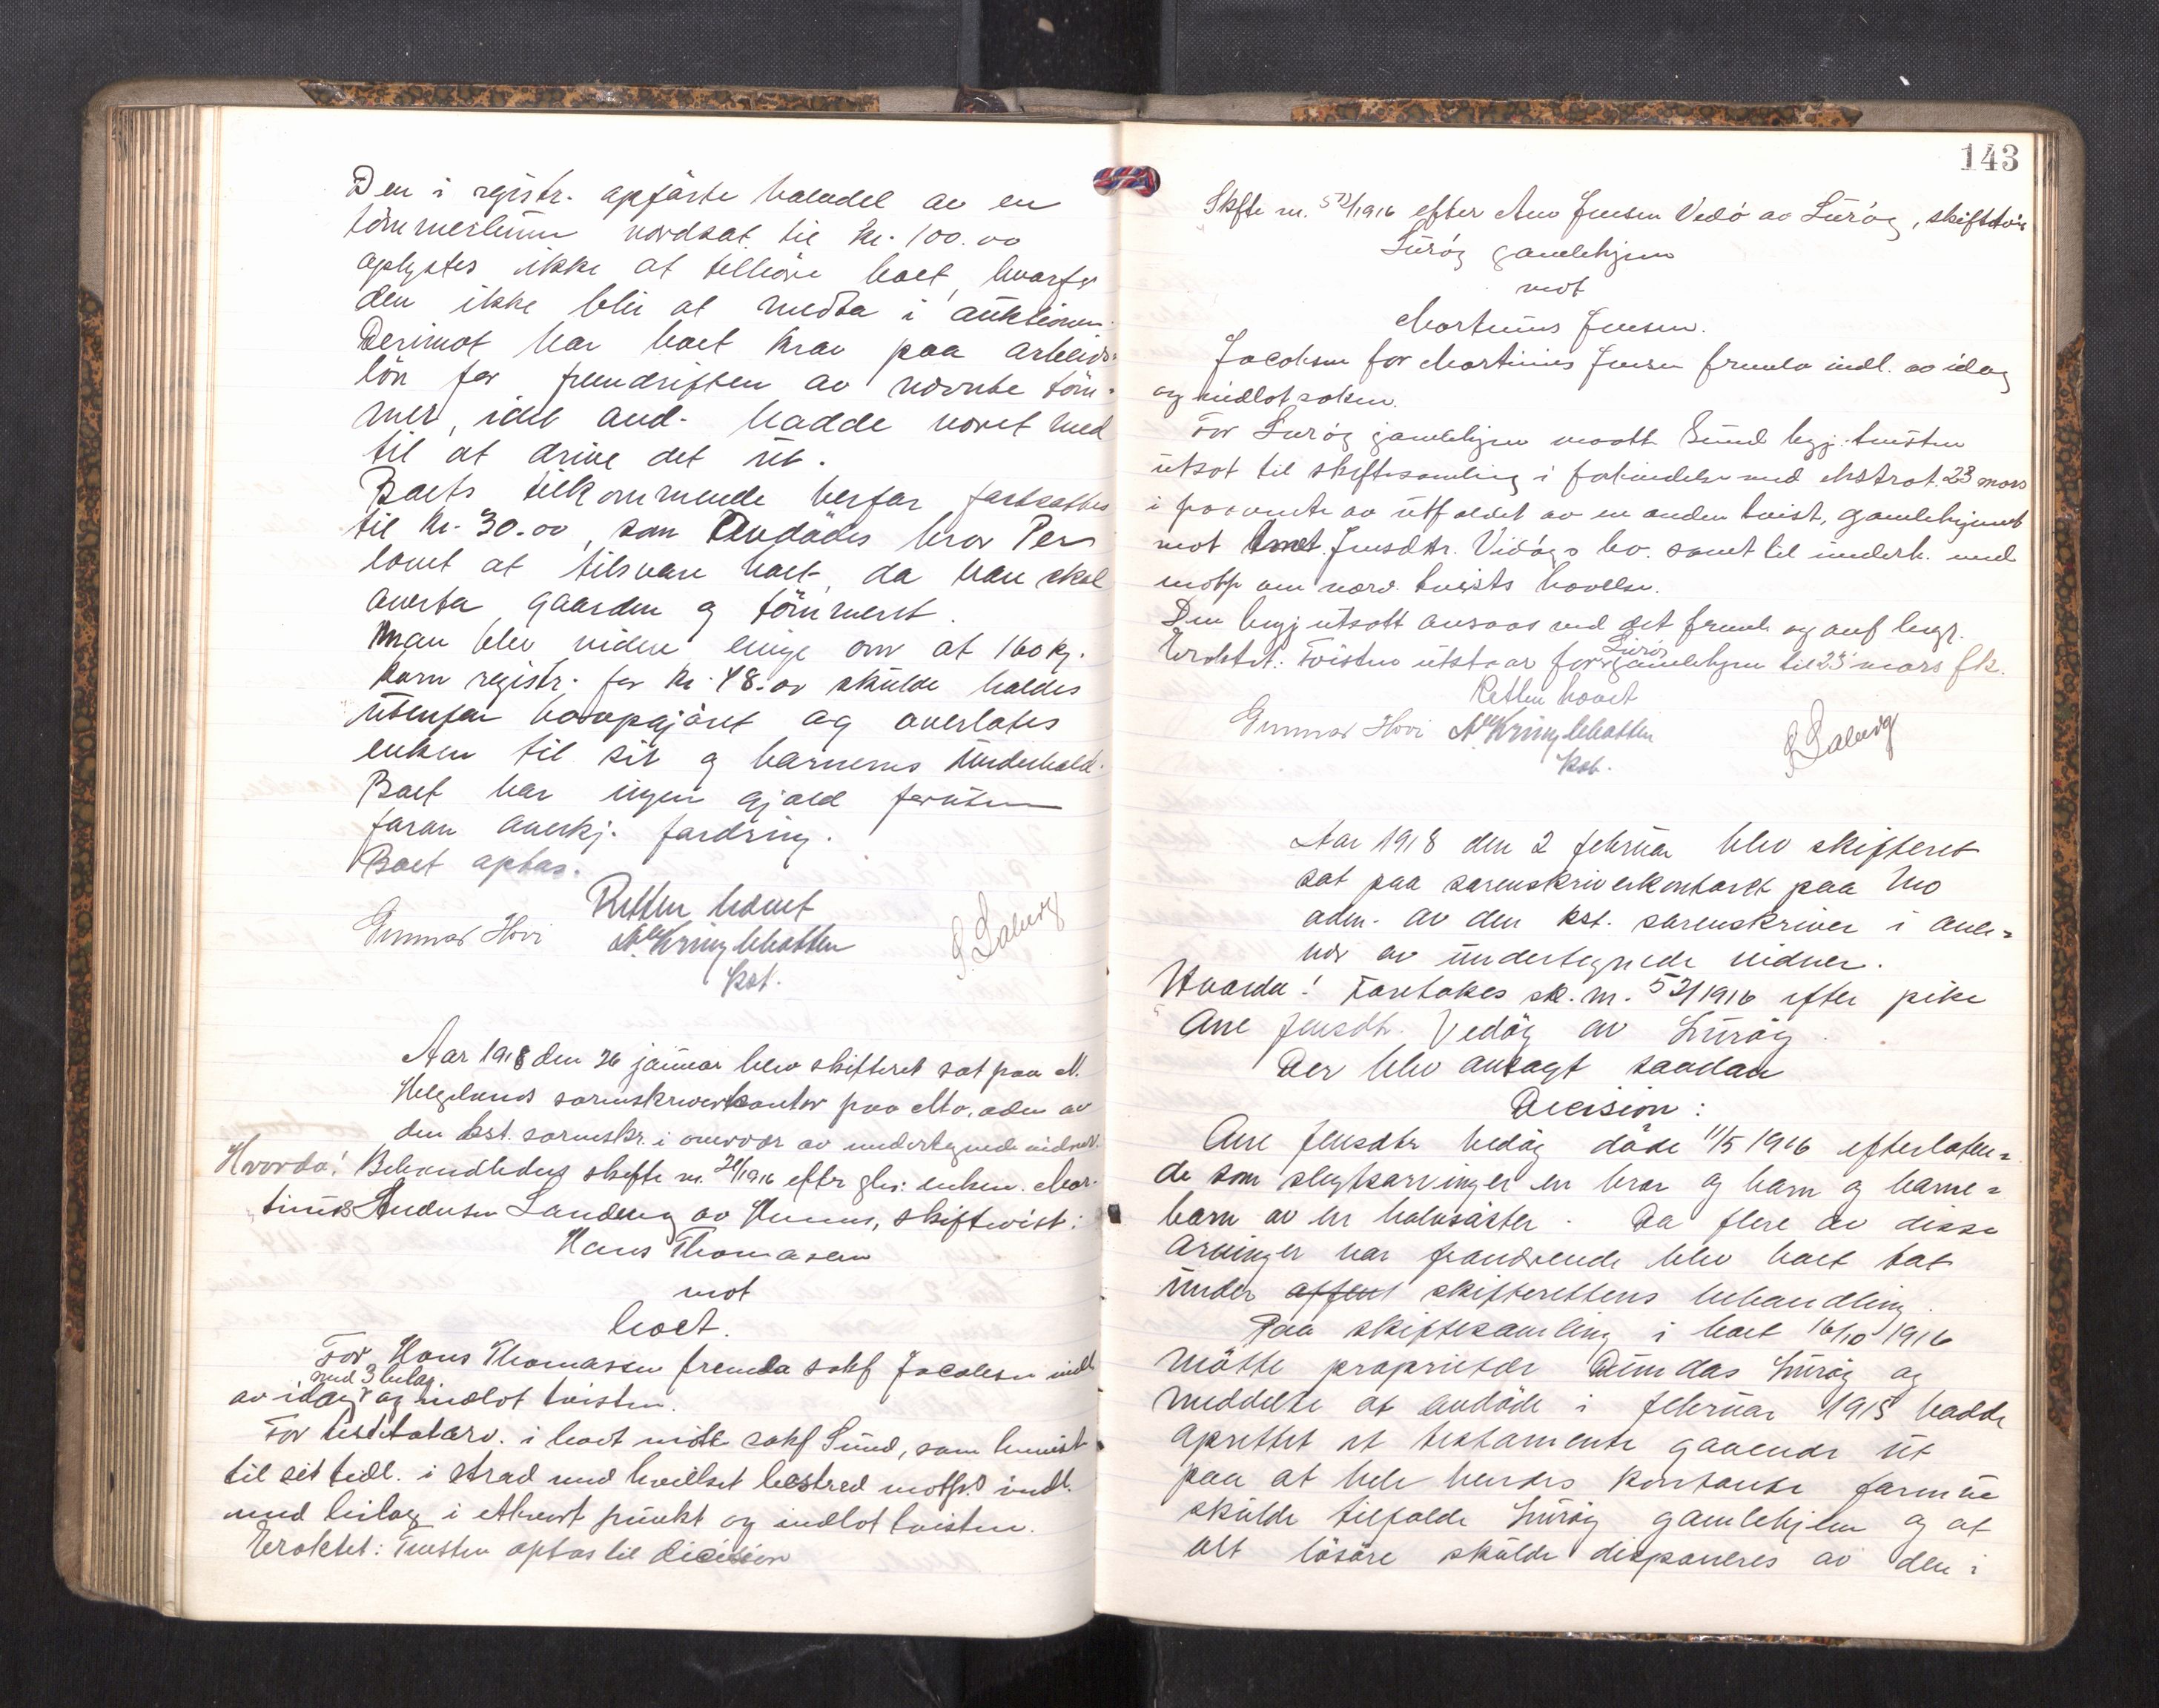 Den i registr. opførte halvdel av en
tømmerlunn vordsat til kr. 100.00
oplystes ikke at tilhøre boet, hvorfor
den ikke blir at medta i auktionen.
Derimot har boet krav paa arbeids-
løn for fremdriften av nævnte tøm-
mer, idet avd. hadde været med
til at drive det ut.
Boets tilkommende herfor fastsattes
til kr. 30.00, som avdødes bror Per
lovet at tilsvare boet, da han skal
overta gaarden og tømmeret.
Man blev videre enige om at 160 kg.
korn registr. for kr. 48.00 skulde holdes
utenfor boopgjøret og overlates
enken til sit og barnenes underhold.
Boet har ingen gjæld foruten
foran anerkj. fordring.
Boet optas.
Retten hævet
Gunnar Hovi
kst.
Aar 1918 den 26 januar blev skifteret sat paa N.
Helgelands sorenskriverkontor paa Mo, adm av
den kst. sorenskr. i overvær av undertegnede vidner.
Hvorda! Behandledes skifte nr. 21/1916 efter enken Mar-
tinus Andersen av skiftetvist:
Hans Thomassen
mot
boet.
For Hans Thomassen fremla sakf Jacobsen indl
med 3 bilag
av idag og indlot tvisten.
For testatarv. i boet møtte sakf Sund, som henviste
til sit tidl. i strid med hvilket bestred motp.s indl.
med bilag i ethvert punkt og indlot tvisten.
Eraktet: Tvisten optas til decision
143
Skifte nr. 52/1916 efter Ane Jensen Vedø av Lurøy, skiftetvist
Lurøy gamlehjem
mot
Martinus Jensen.
Jacobsen for Martinus Jensen fremla indl. av idag
og indlot saken.
For Lurøy gamlehjem møtte Sund begj. tvisten
utsat til skiftesamling i forbindelse med ekstrat. 23 mars
i paavente av utfaldet av en anden tvist, gamlehjemmet
mot Jensdtr. Vedøys bo. samt til underh. med
motp om nærv. tvists hævelse.
Den begj utsatt ansaas ved det fremk og anf begr.
Lurøy
Eraktet: Tvisten utstaar for gamlehjem til 23 mars fk.
Retten hævet
Gunnar Hovi
kst.
Aar 1918 den 2 februar blev skifteret
sat paa sorenskriverkontoret paa Mo
adm. av den kst. sorenskriver i over-
vær av undertegnede vidner.
Hvorda! Foretokes sk. nr. 52/1916 efter pike
Ane Jensdtr. Vedøy av Lurøy.
Der blev avsagt saadan
Decision:
Ane Jensdtr Vedøy døde 11/5 1916 efterlaten-
de som slegtsarvinger en bror og barn og barne-
barn av en halvsøster. Da flere av disse
arvinger var fraværende blev boet tat
under offent skifterettens behandling.
Paa skiftesamling i boet 16/10 1916
møtte proprietær Dundas Lurøy og
meddelte at avdøde i februar 1915 hadde
oprettet et testamente gaaende ut
paa at hele hendes kontante formue
skulde tilfalde Lurøy gamlehjem og at
alt løsøre skulde disponeres av den i